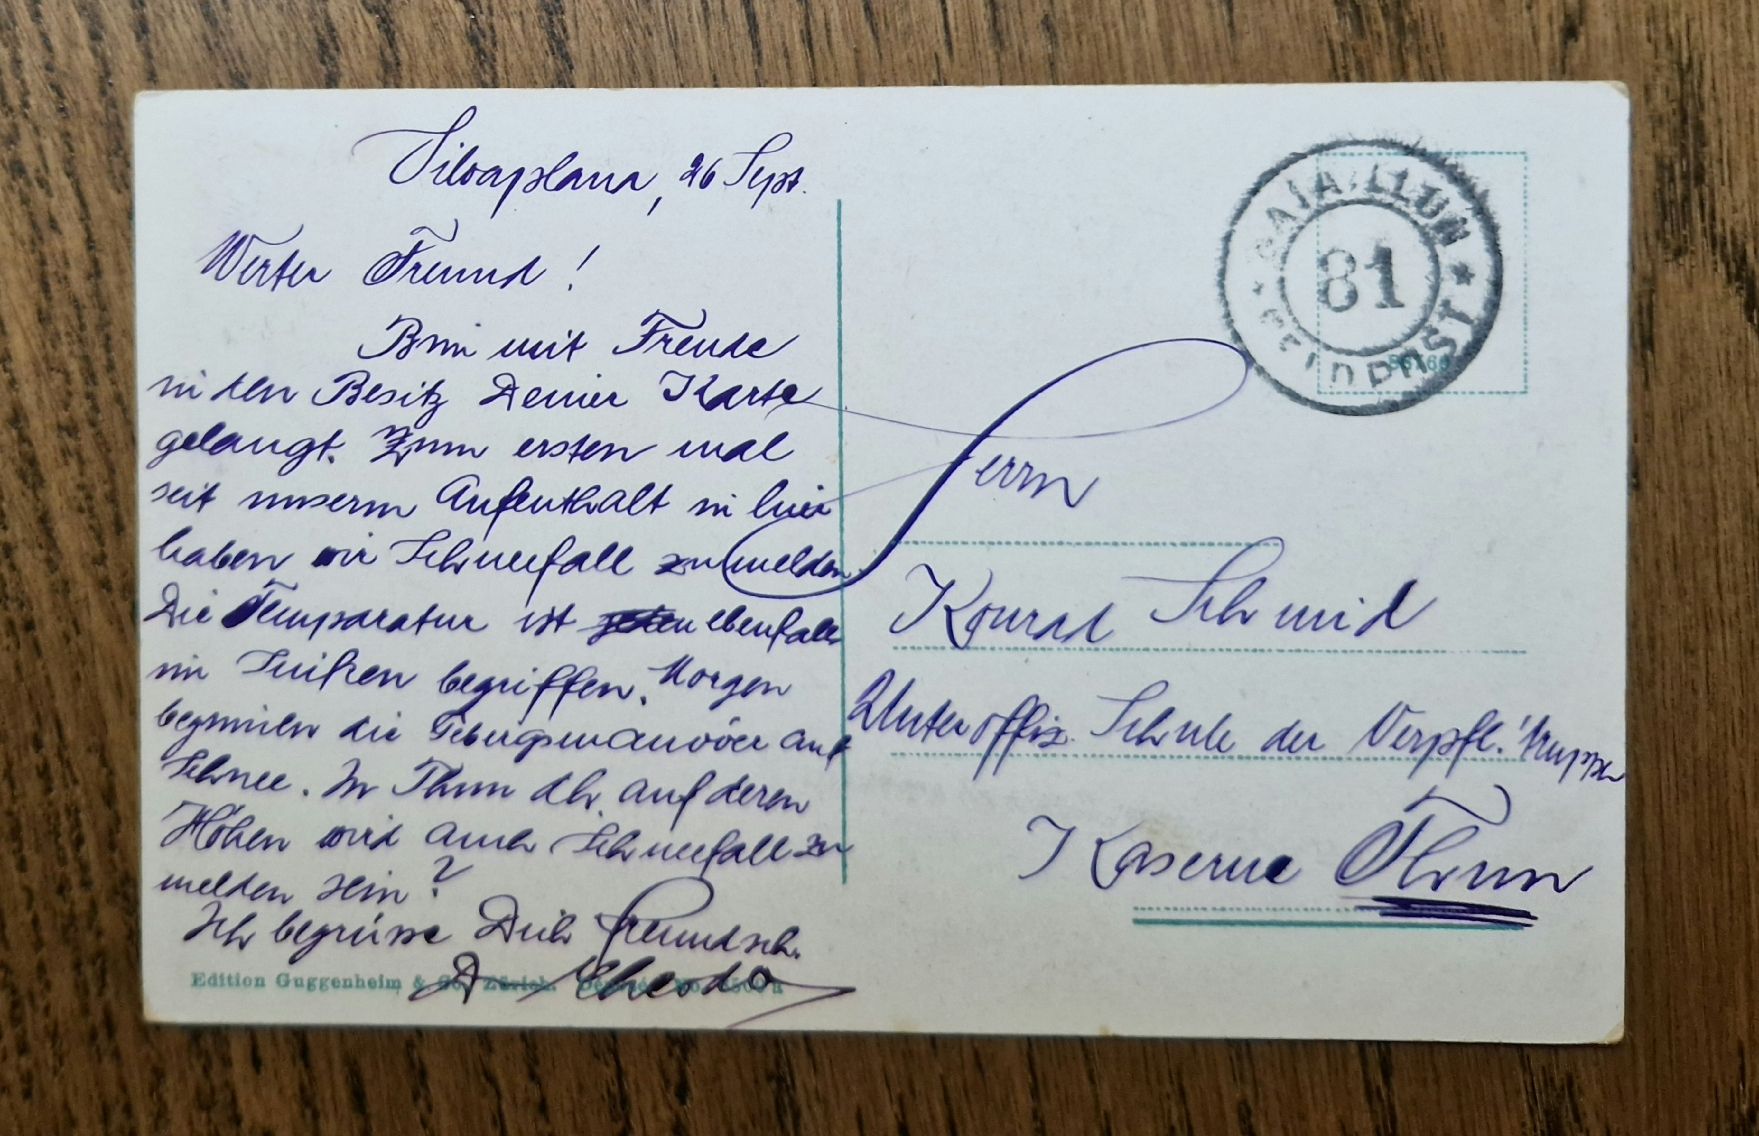 Silvaplana, 26 Sept.
Werter Freund!
Bin mit Freude
in den Besitz Deiner Karte
gelangt. Zum ersten mal
seit unserm Aufenthalt in hier
haben wir Schneefall zu melden.
Die Temparatur ist ebenfalls
im Sinken begriffen. Morgen
beginnen die Gebirgsmanöver auf
Schnee. In Thun dh. auf deren
Höhen wird auch Schneefall zu
melden sein?
Ich begrüsse Dich freundsch.
Edition Guggenheim & Co., Zürich.
BATAILLON
81
FELDPOST
Herrn
Konrad Schmid
Unteroffiz. Schule der Verpfl. truppe
Kaserne Thun